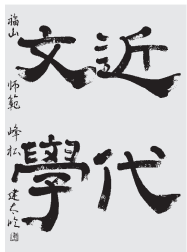 近代
文學
福山 師範 峰松